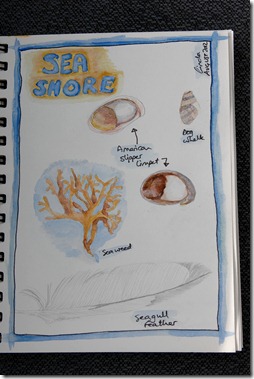 SEA
SHORE
August 202
Dog
Whelk
American
Slipper
Limpet
Seaweed
Seagull
Feather